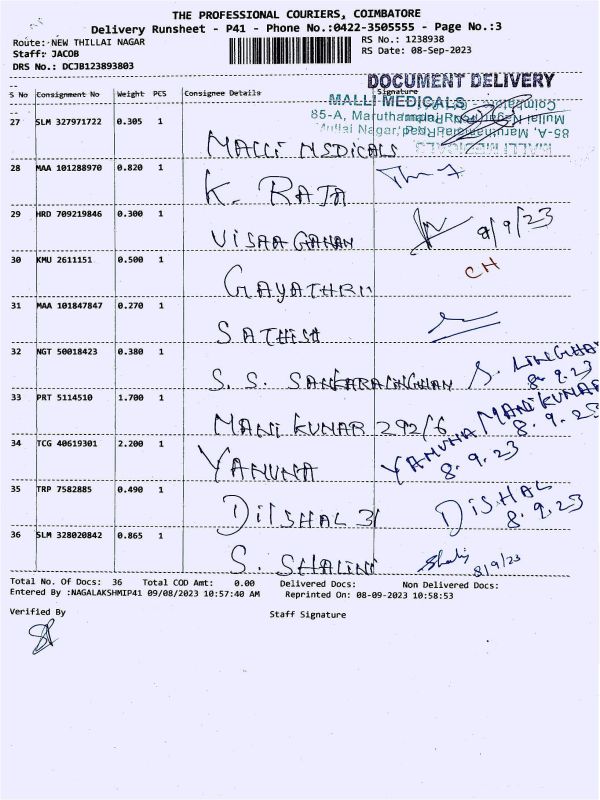 THE PROFESSIONAL COURIERS, COIMBATORE
Delivery Runsheet - P41 - Phone No.:0422-3505555 - Page No.:3
Route: NEW THILLAI NAGAR RS No.: 1238938
Staff: JACOB RS Date: 08-Sep-2023
DRS No.: DCJB123893803
DOCUMENT DELIVERY
S No Consignment No Weight PCS Consignee Details Signature
MALLI MEDICALS
85-A, Maruthamalai
Mullai Nagar,
27 SLM 327971722 0.305 1 MALLI MEDICALS
28 MAA 101288970 0.820 1 K. RAJA
29 HRD 709219846 0.300 1 VISAA GANAN 8/9/23
30 KMU 2611151 0.500 1 GAYATHRII CH
31 MAA 101847847 0.270 1 SATHISH
32 NGT 50018423 0.380 1 S. S. SANKARALINGHAN S. LINGHAM 8.9.23
33 PRT 5114510 1.700 1 MANI KUMAR 292/6 MANIKUMAR 8.9.23
34 TCG 40619301 2.200 1 YAMUNA YAMUNA 8.9.23
35 TRP 7582885 0.490 1 DILSHAL 31 DISHAL 8.9.23
36 SLM 328020842 0.865 1 S. SHALINI 8/9/23
Total No. Of Docs: 36 Total COD Amt: 0.00 Delivered Docs: Non Delivered Docs:
Entered By :NAGALAKSHMIP41 09/08/2023 10:57:40 AM Reprinted On: 08-09-2023 10:58:53
Verified By Staff Signature